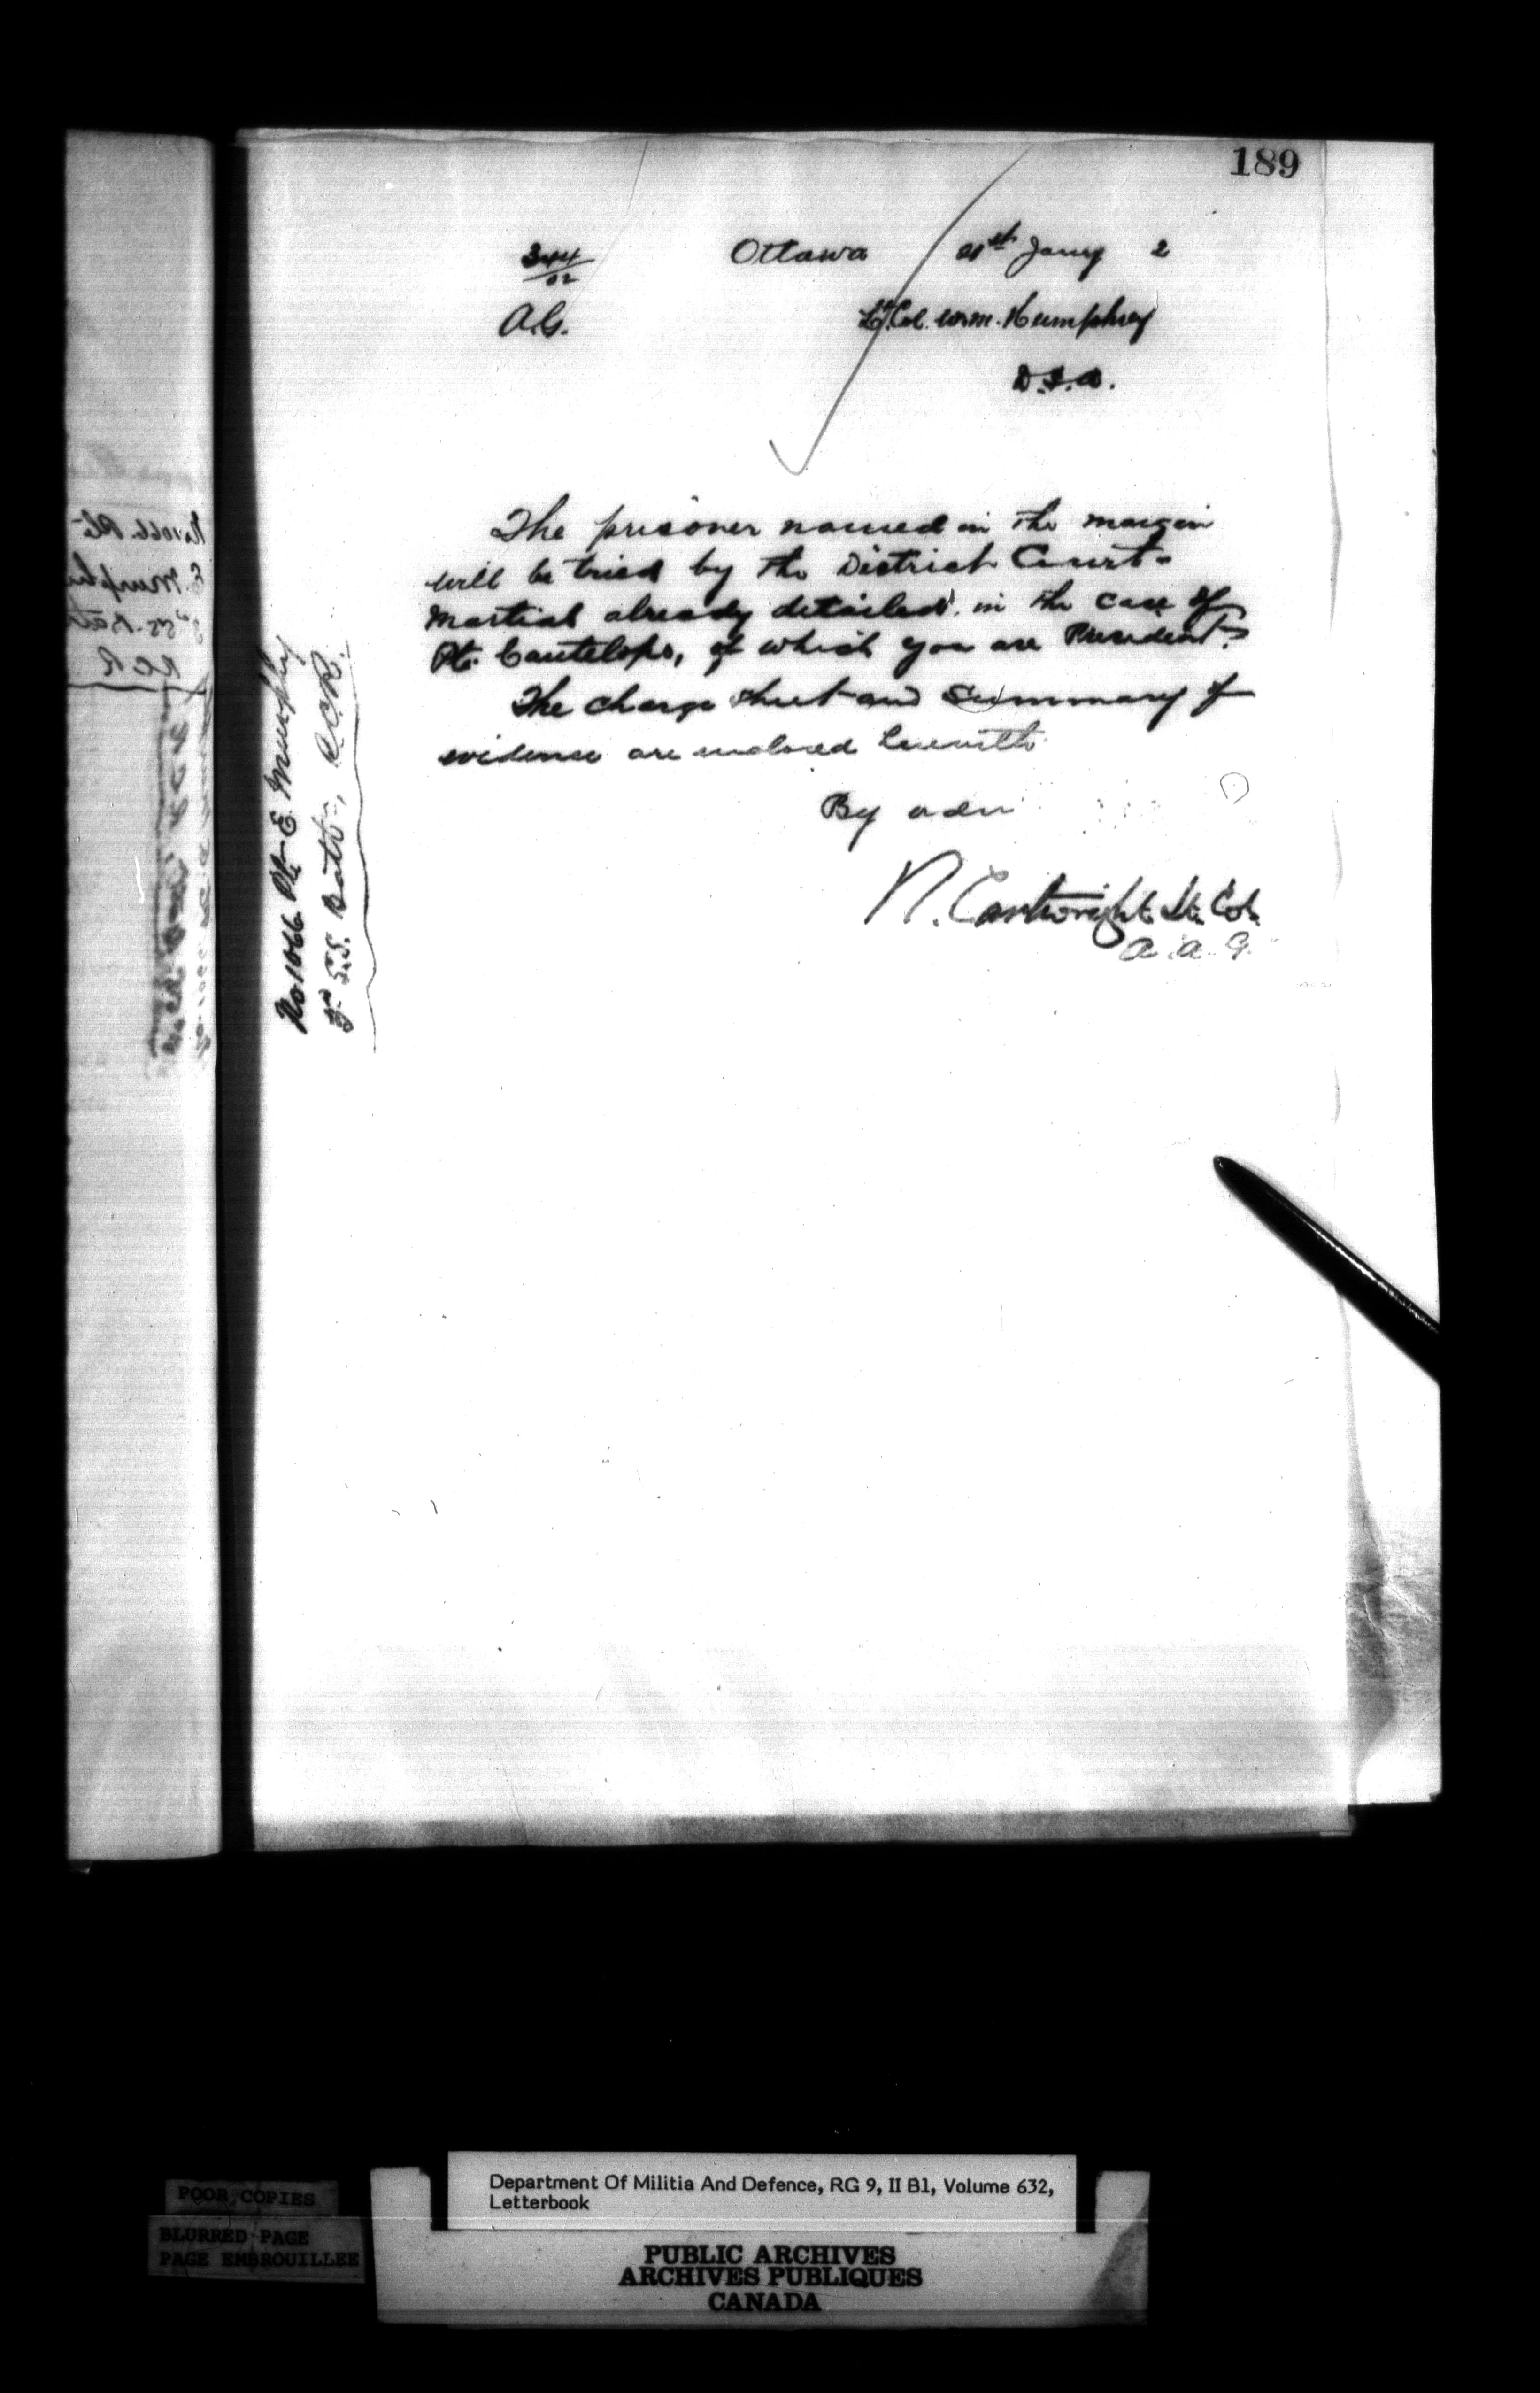 189
344/02
Ottawa 21st Jany 2
A.G.
Lt. Col. Wm. Humphrey
D.S.A.
The prisoner named in the margin
will be tried by the District Court-
Martial already detailed in the case of
Pte. Cantelope, of which you are President.
The charge sheet and summary of
evidence are enclosed herewith
By order
N. Cartwright Lt. Col.
A.A.G.
No 1066 Pte E. Murphy
3rd S.S. Battn, R.C.R.
No 1066 Pte
E. Murphy
R C R
POOR COPIES
BLURRED PAGE
PAGE EMBROUILLEE
Department Of Militia And Defence, RG 9, II B1, Volume 632,
Letterbook
PUBLIC ARCHIVES
ARCHIVES PUBLIQUES
CANADA